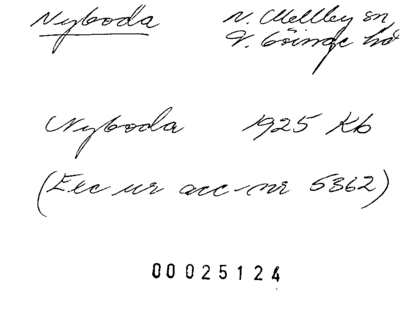 Nyboda N. Mellby sn
V. Göinge hd
Nyboda 1925 Kb
(Exc ur acc-nr 5362)
00025124